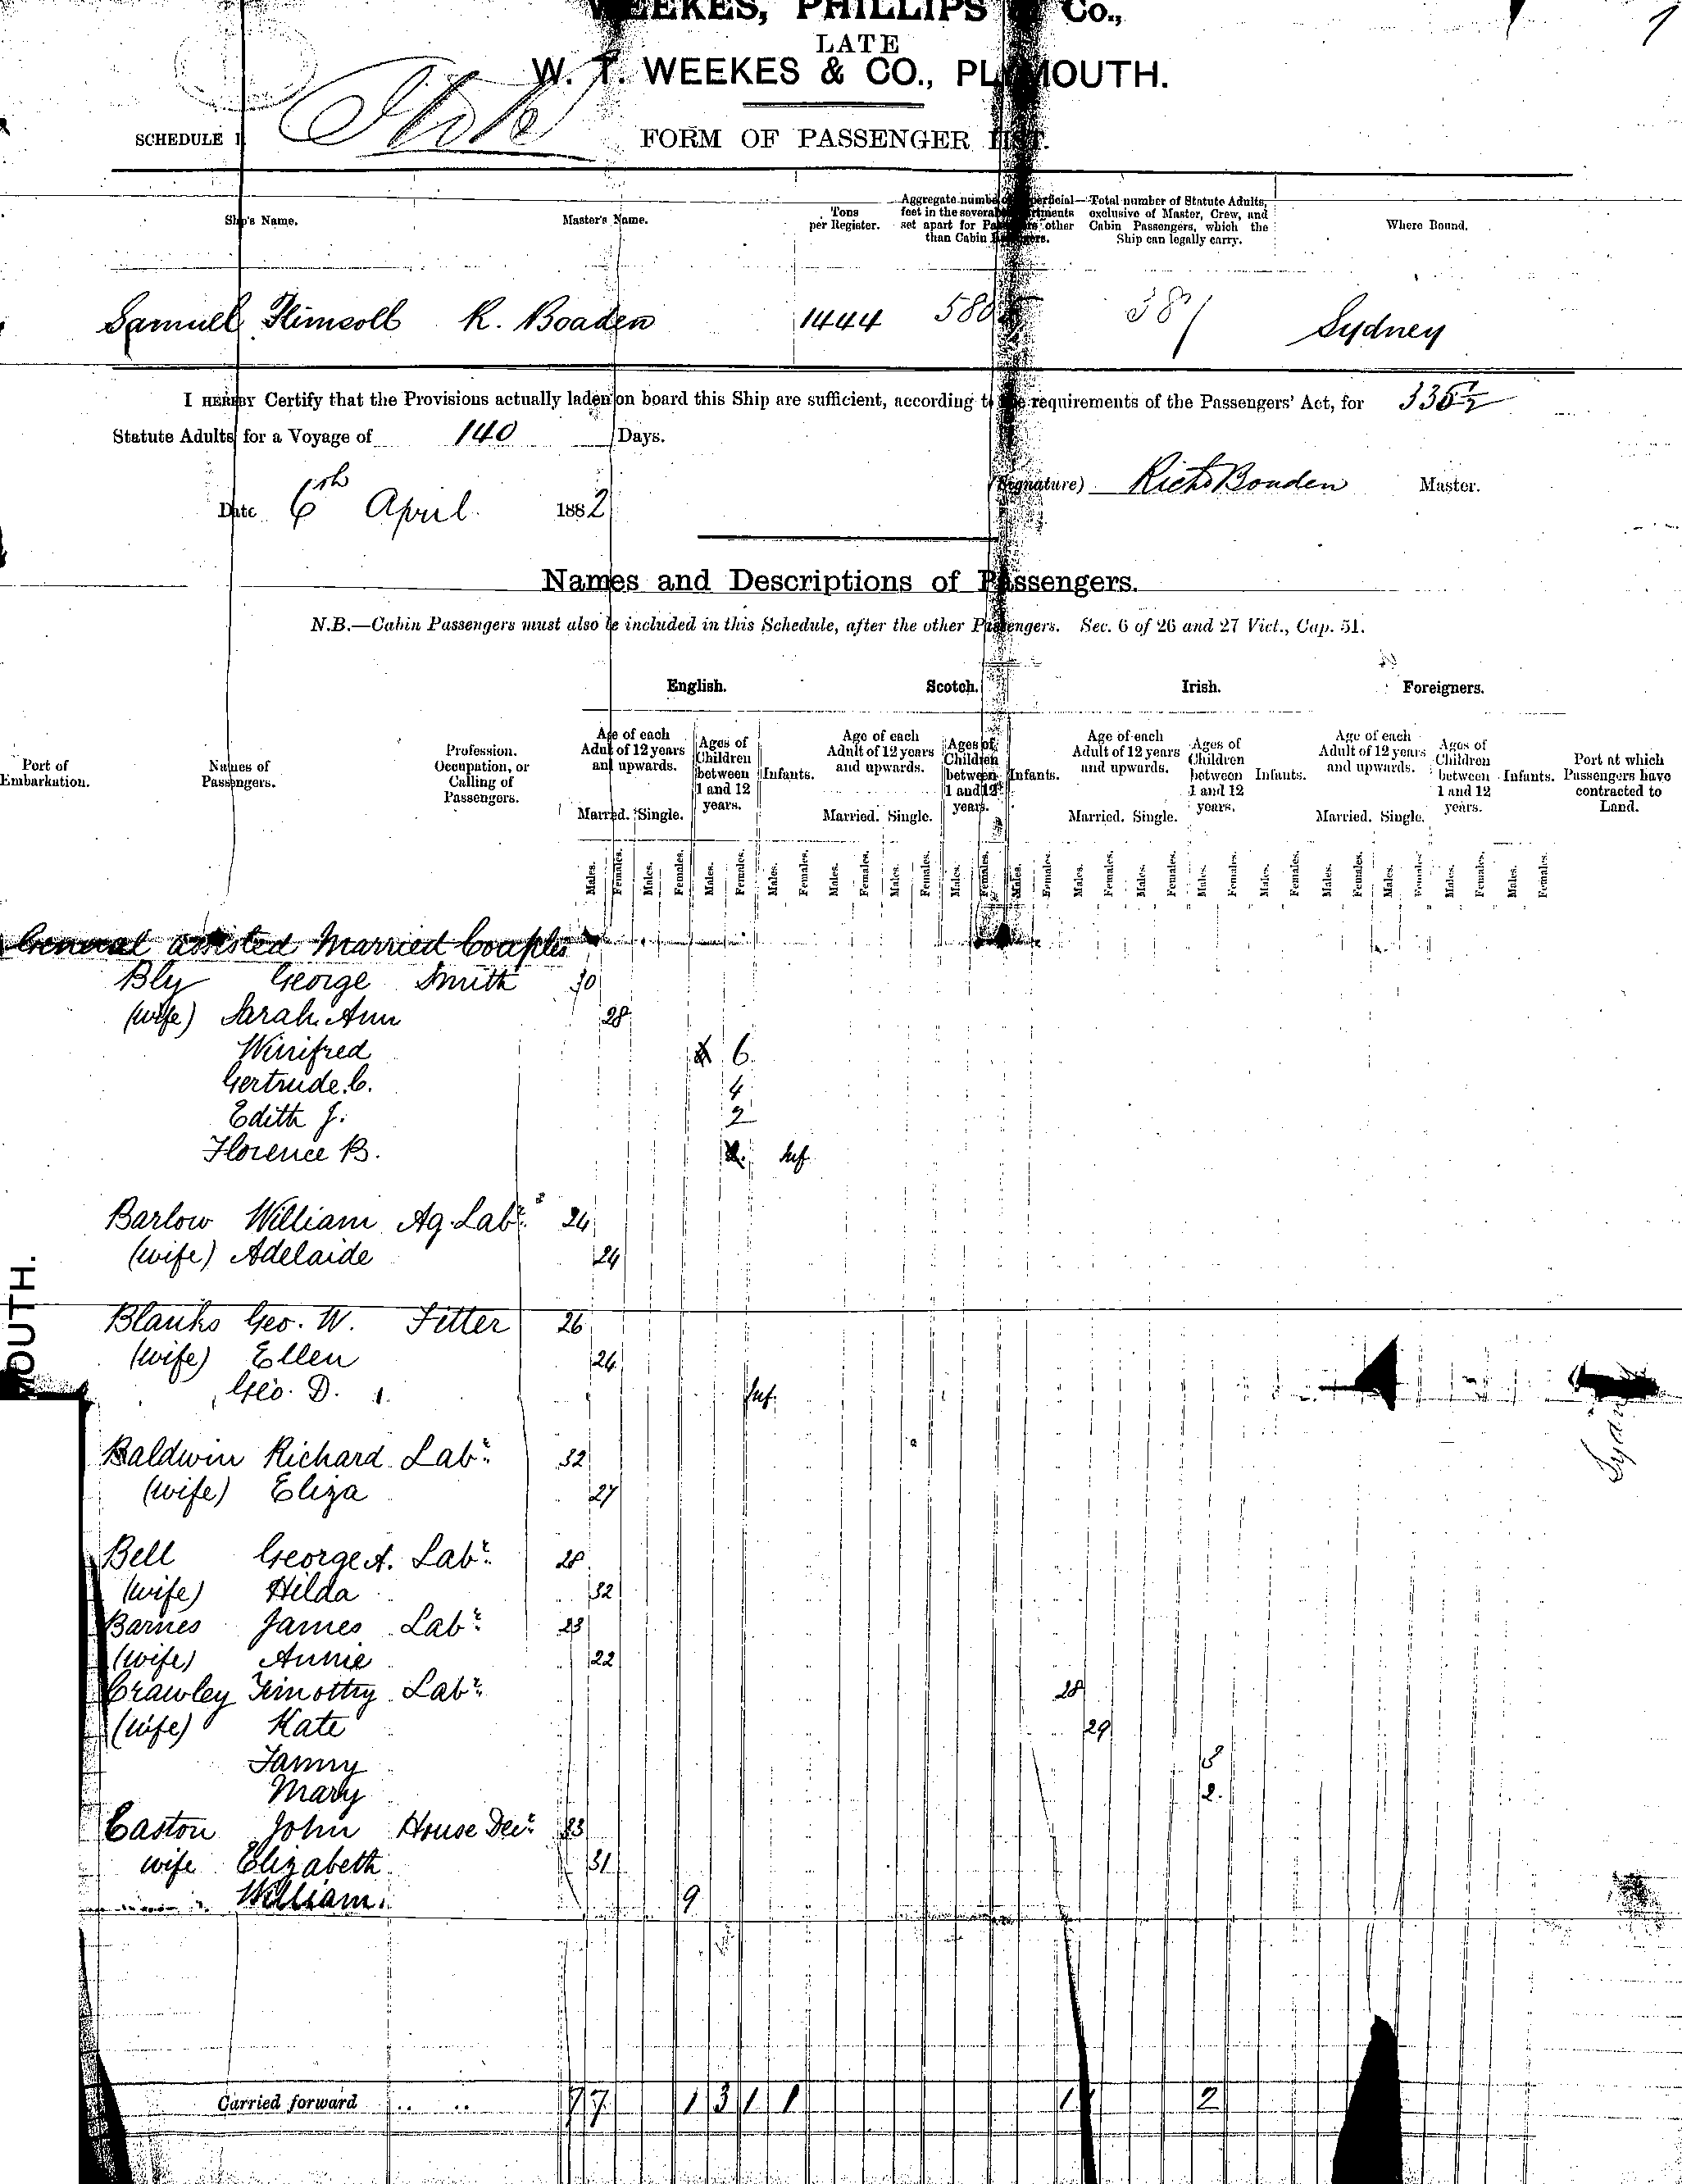 WEEKES, PHILLIPS & Co.,
LATE
W. T. WEEKES & CO., PLYMOUTH.
SCHEDULE
FORM OF PASSENGER LIST.
Ship's Name. Master's Name. Tons per Register. Aggregate number of superficial feet in the several compartments set apart for Passengers other than Cabin Passengers. Total number of Statute Adults, exclusive of Master, Crew, and Cabin Passengers, which the Ship can legally carry. Where Bound.
Samuel Plimsoll R. Boaden 1444 580 381 Sydney
I HEREBY Certify that the Provisions actually laden on board this Ship are sufficient, according to the requirements of the Passengers' Act, for
Statute Adults for a Voyage of 140 Days.
(Signature) Richd Boaden Master.
Date 6th April 1882
Names and Descriptions of Passengers.
N.B.—Cabin Passengers must also be included in this Schedule, after the other Passengers. Sec. 6 of 26 and 27 Vict., Cap. 51.
English. Scotch. Irish. Foreigners.
Port of Embarkation. Names of Passengers. Profession. Occupation, or Calling of Passengers. Age of each Adult of 12 years and upwards. Ages of Children between 1 and 12 years. Infants. Age of each Adult of 12 years and upwards. Ages of Children between 1 and 12 years. Infants. Age of each Adult of 12 years and upwards. Ages of Children between 1 and 12 years. Infants. Age of each Adult of 12 years and upwards. Ages of Children between 1 and 12 years. Infants. Port at which Passengers have contracted to Land.
Married. Single. Married. Single. Married. Single. Married. Single.
Males. Females. Males. Females. Males. Females. Males. Females. Males. Females. Males. Females. Males. Females. Males. Females. Males. Females. Males. Females. Males. Females. Males. Females. Males. Females. Males. Females. Males. Females. Males. Females.
General assisted Married Couples
Bly George Smith 30
(wife) Sarah Ann 28
Winifred 6
Gertrude C. 4
Edith J. 2
Florence B. Inf
Barlow William Ag. Labr. 24
(wife) Adelaide 24
Blanks Geo. W. Fitter 26
(wife) Ellen 24
Geo. D. Inf.
Baldwin Richard Labr. 32
(wife) Eliza 27
Bell George A. Labr. 28
(wife) Hilda 32
Barnes James Labr. 23
(wife) Annie 22
Crawley Timothy Labr. 28
(wife) Kate 29
Fanny
Mary 2
Easton John House Decr. 33
wife Elizabeth 31
William 9
OUTH.
Carried forward .. .. 7 7 1 3 1 1 1 2